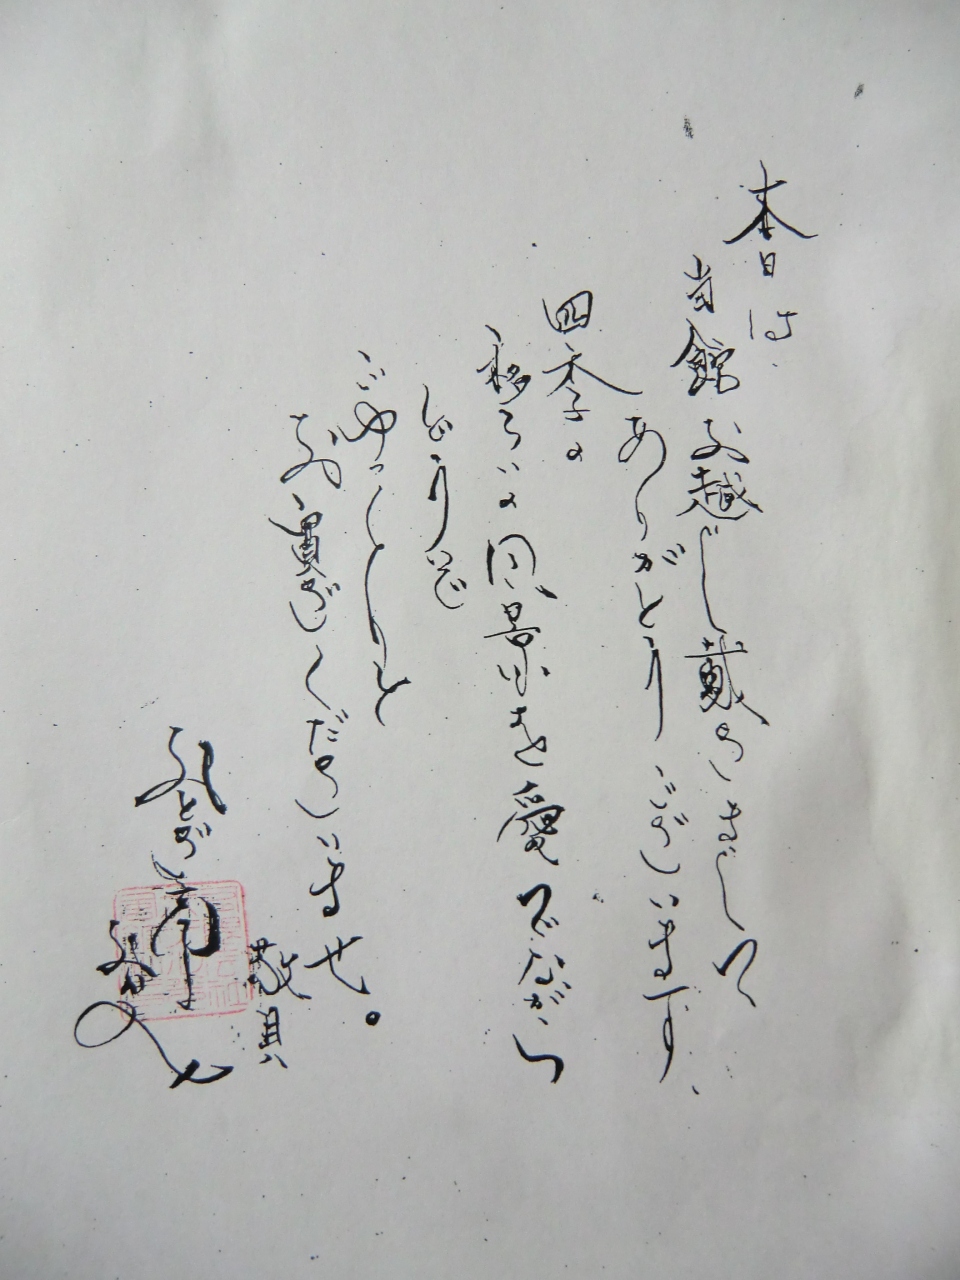 本日は
当館お越し戴きまして
ありがとうございます、
四季の
移ろいの風景を愛でながら
どうぞ
ごゆっくりと
お寛ぎくださいませ。
敬具